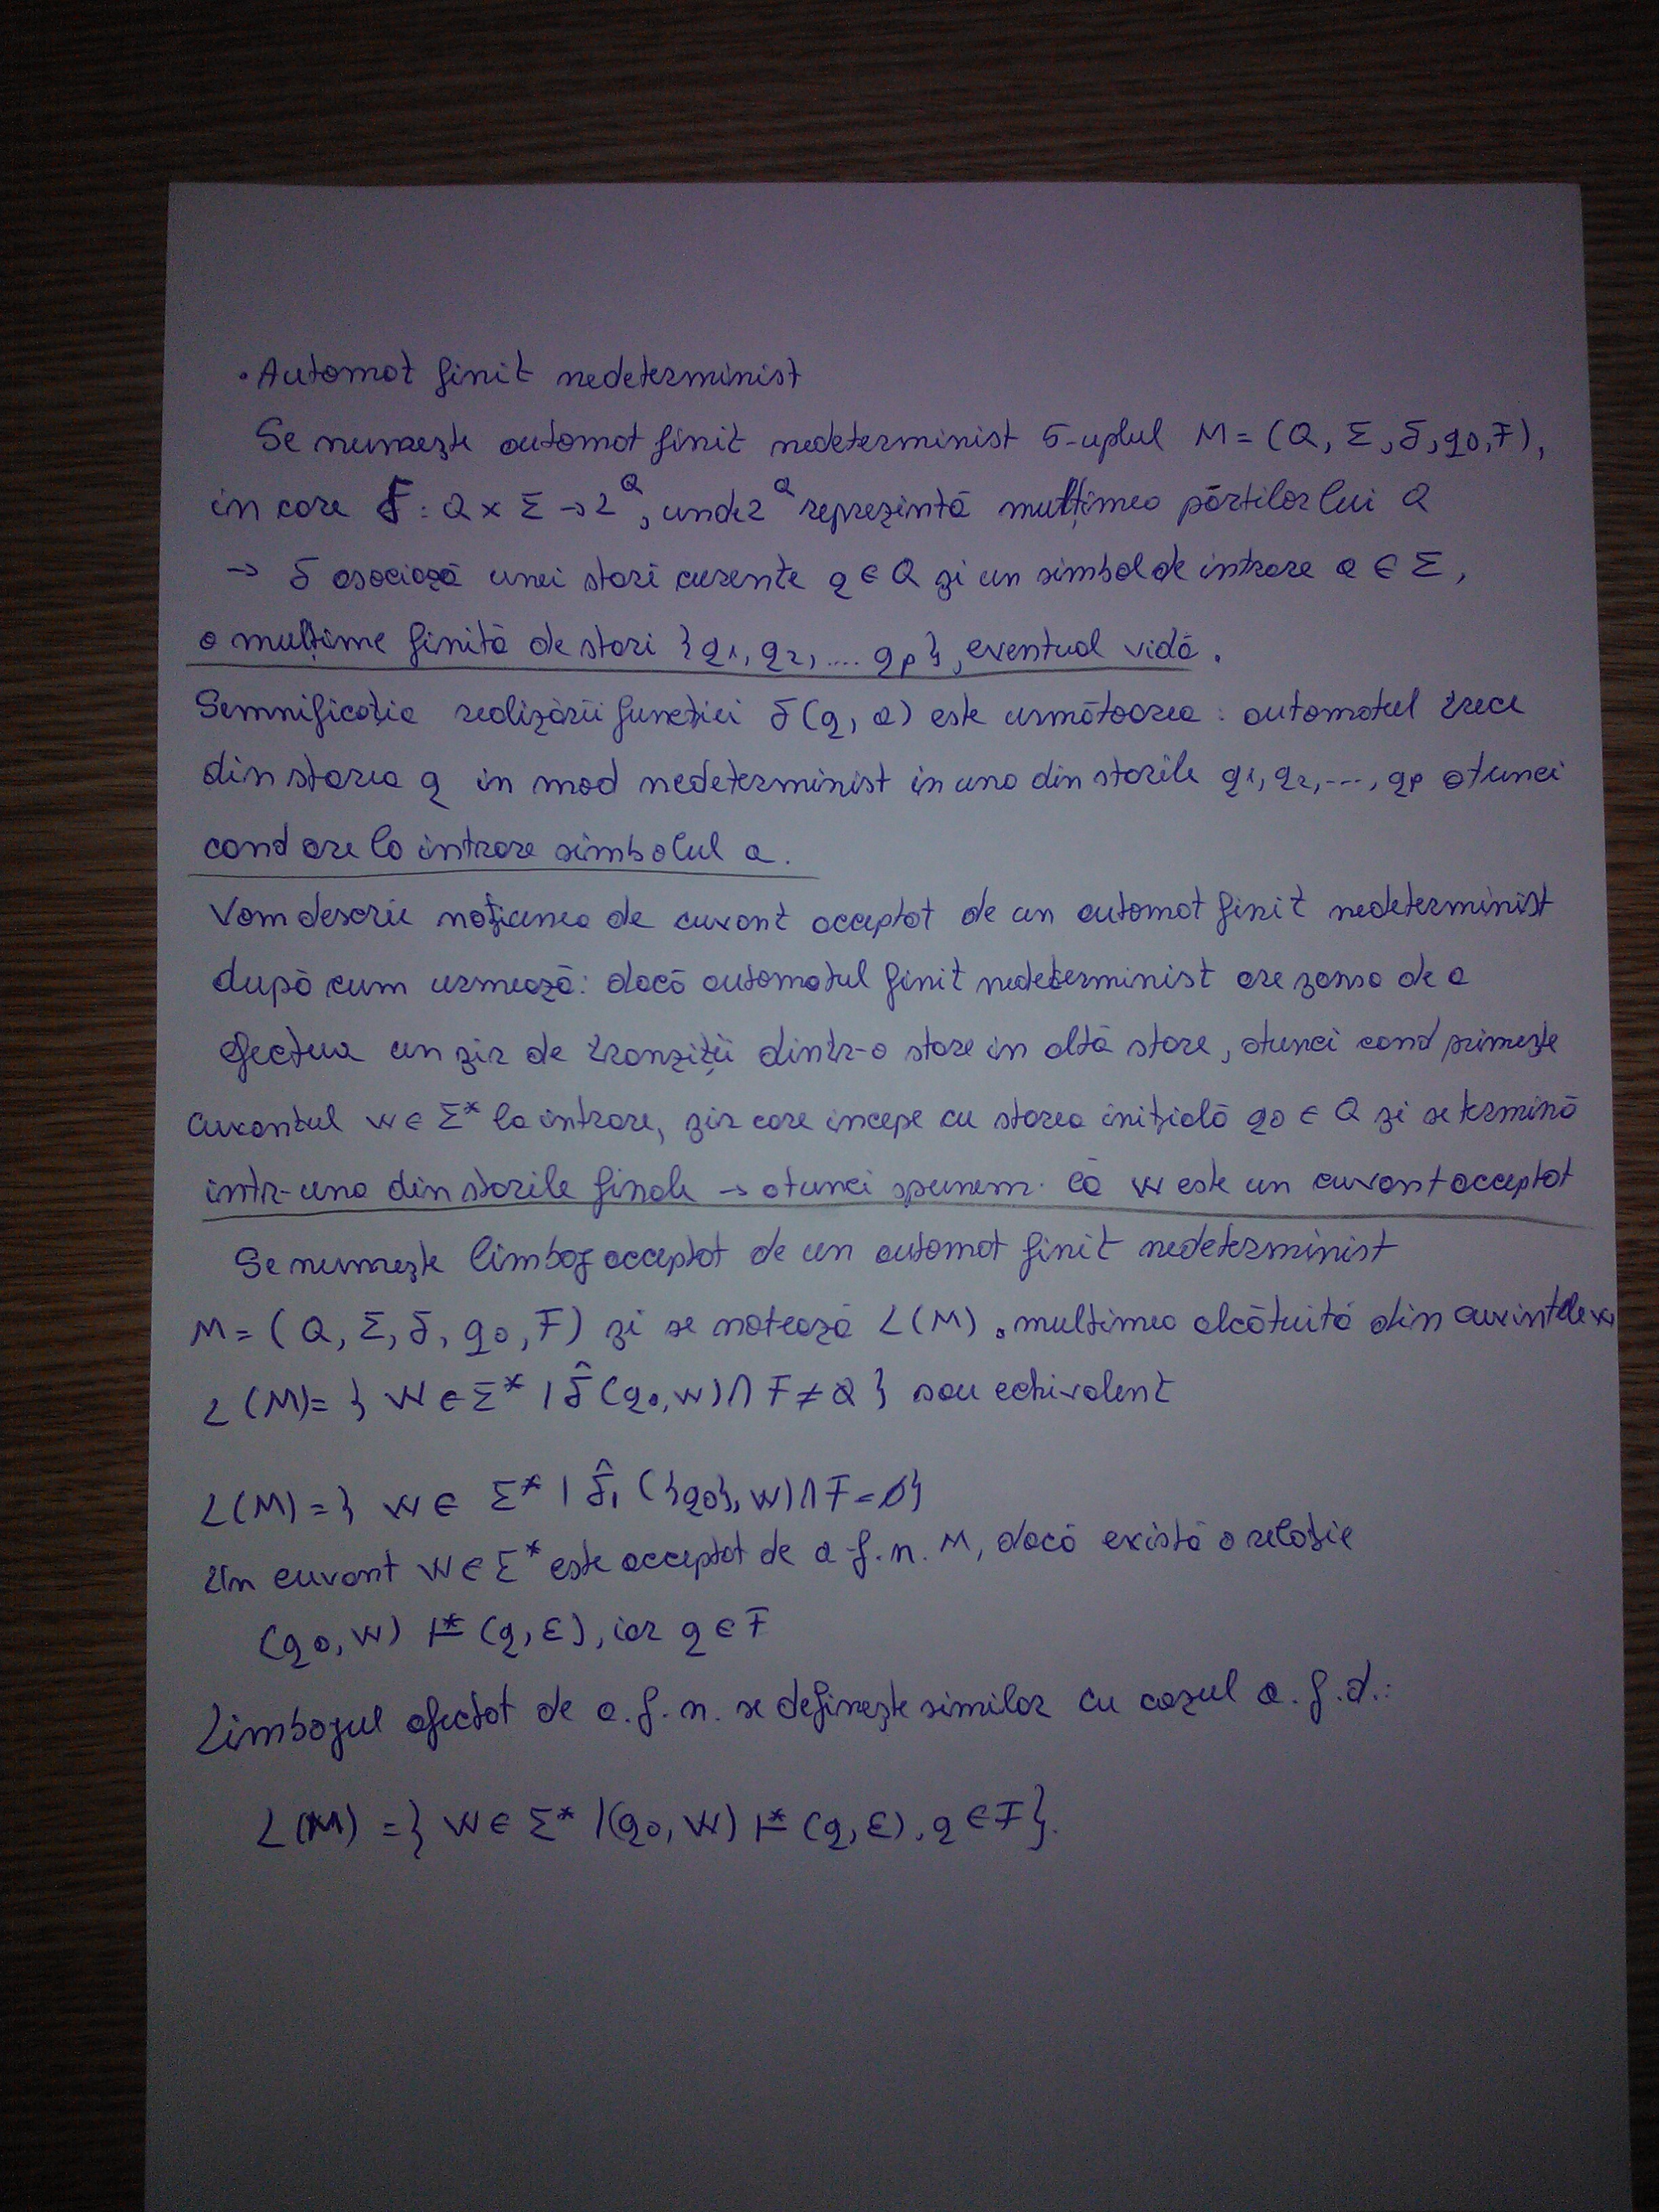 • Automat finit nedeterminist
Se numește automat finit nedeterminist 5-uplul M = (Q, Σ, δ, q0, F),
in care δ : Q × Σ → 2^Q, unde 2^Q reprezintă mulțimea părtilor lui Q
→ δ asociază unei stări curente q ∈ Q și un simbol de intrare a ∈ Σ,
o mulțime finită de stari {q1, q2, .... qp}, eventual vidă.
Semnificația realizării funcției δ(q, a) este următoarea : automatul trece
din starea q in mod nedeterminist in una din stările q1, q2, ---, qp atunci
cand are la intrare simbolul a.
Vom descrie noțiunea de cuvant acceptat de un automat finit nedeterminist
după cum urmează: dacă automatul finit nedeterminist are șansa de a
efectua un șir de tranziții dintr-o stare in altă stare, atunci cand primește
cuvantul w ∈ Σ* la intrare, șir care incepe cu starea inițială q0 ∈ Q și se termină
intr-una din stările finale → atunci spunem că w este un cuvant acceptat
Se numește limbaj acceptat de un automat finit nedeterminist
M = (Q, Σ, δ, q0, F) și se notează L(M), multimea alcătuită din cuvintele w
L(M)= { w ∈ Σ* | δ̂(q0, w) ∩ F ≠ Q } sau echivalent
L(M) = { w ∈ Σ* | δ̂1 ({q0}, w) ∩ F = ∅}
Un cuvant w ∈ Σ* este acceptat de a.f.n. M, dacă există o relație
(q0, w) ⊨* (q, ε), iar q ∈ F
Limbajul afectat de a.f.n. se definește similar cu cazul a.f.d.:
L(M) = { w ∈ Σ* |(q0, w) ⊨* (q, ε), q ∈ F}.